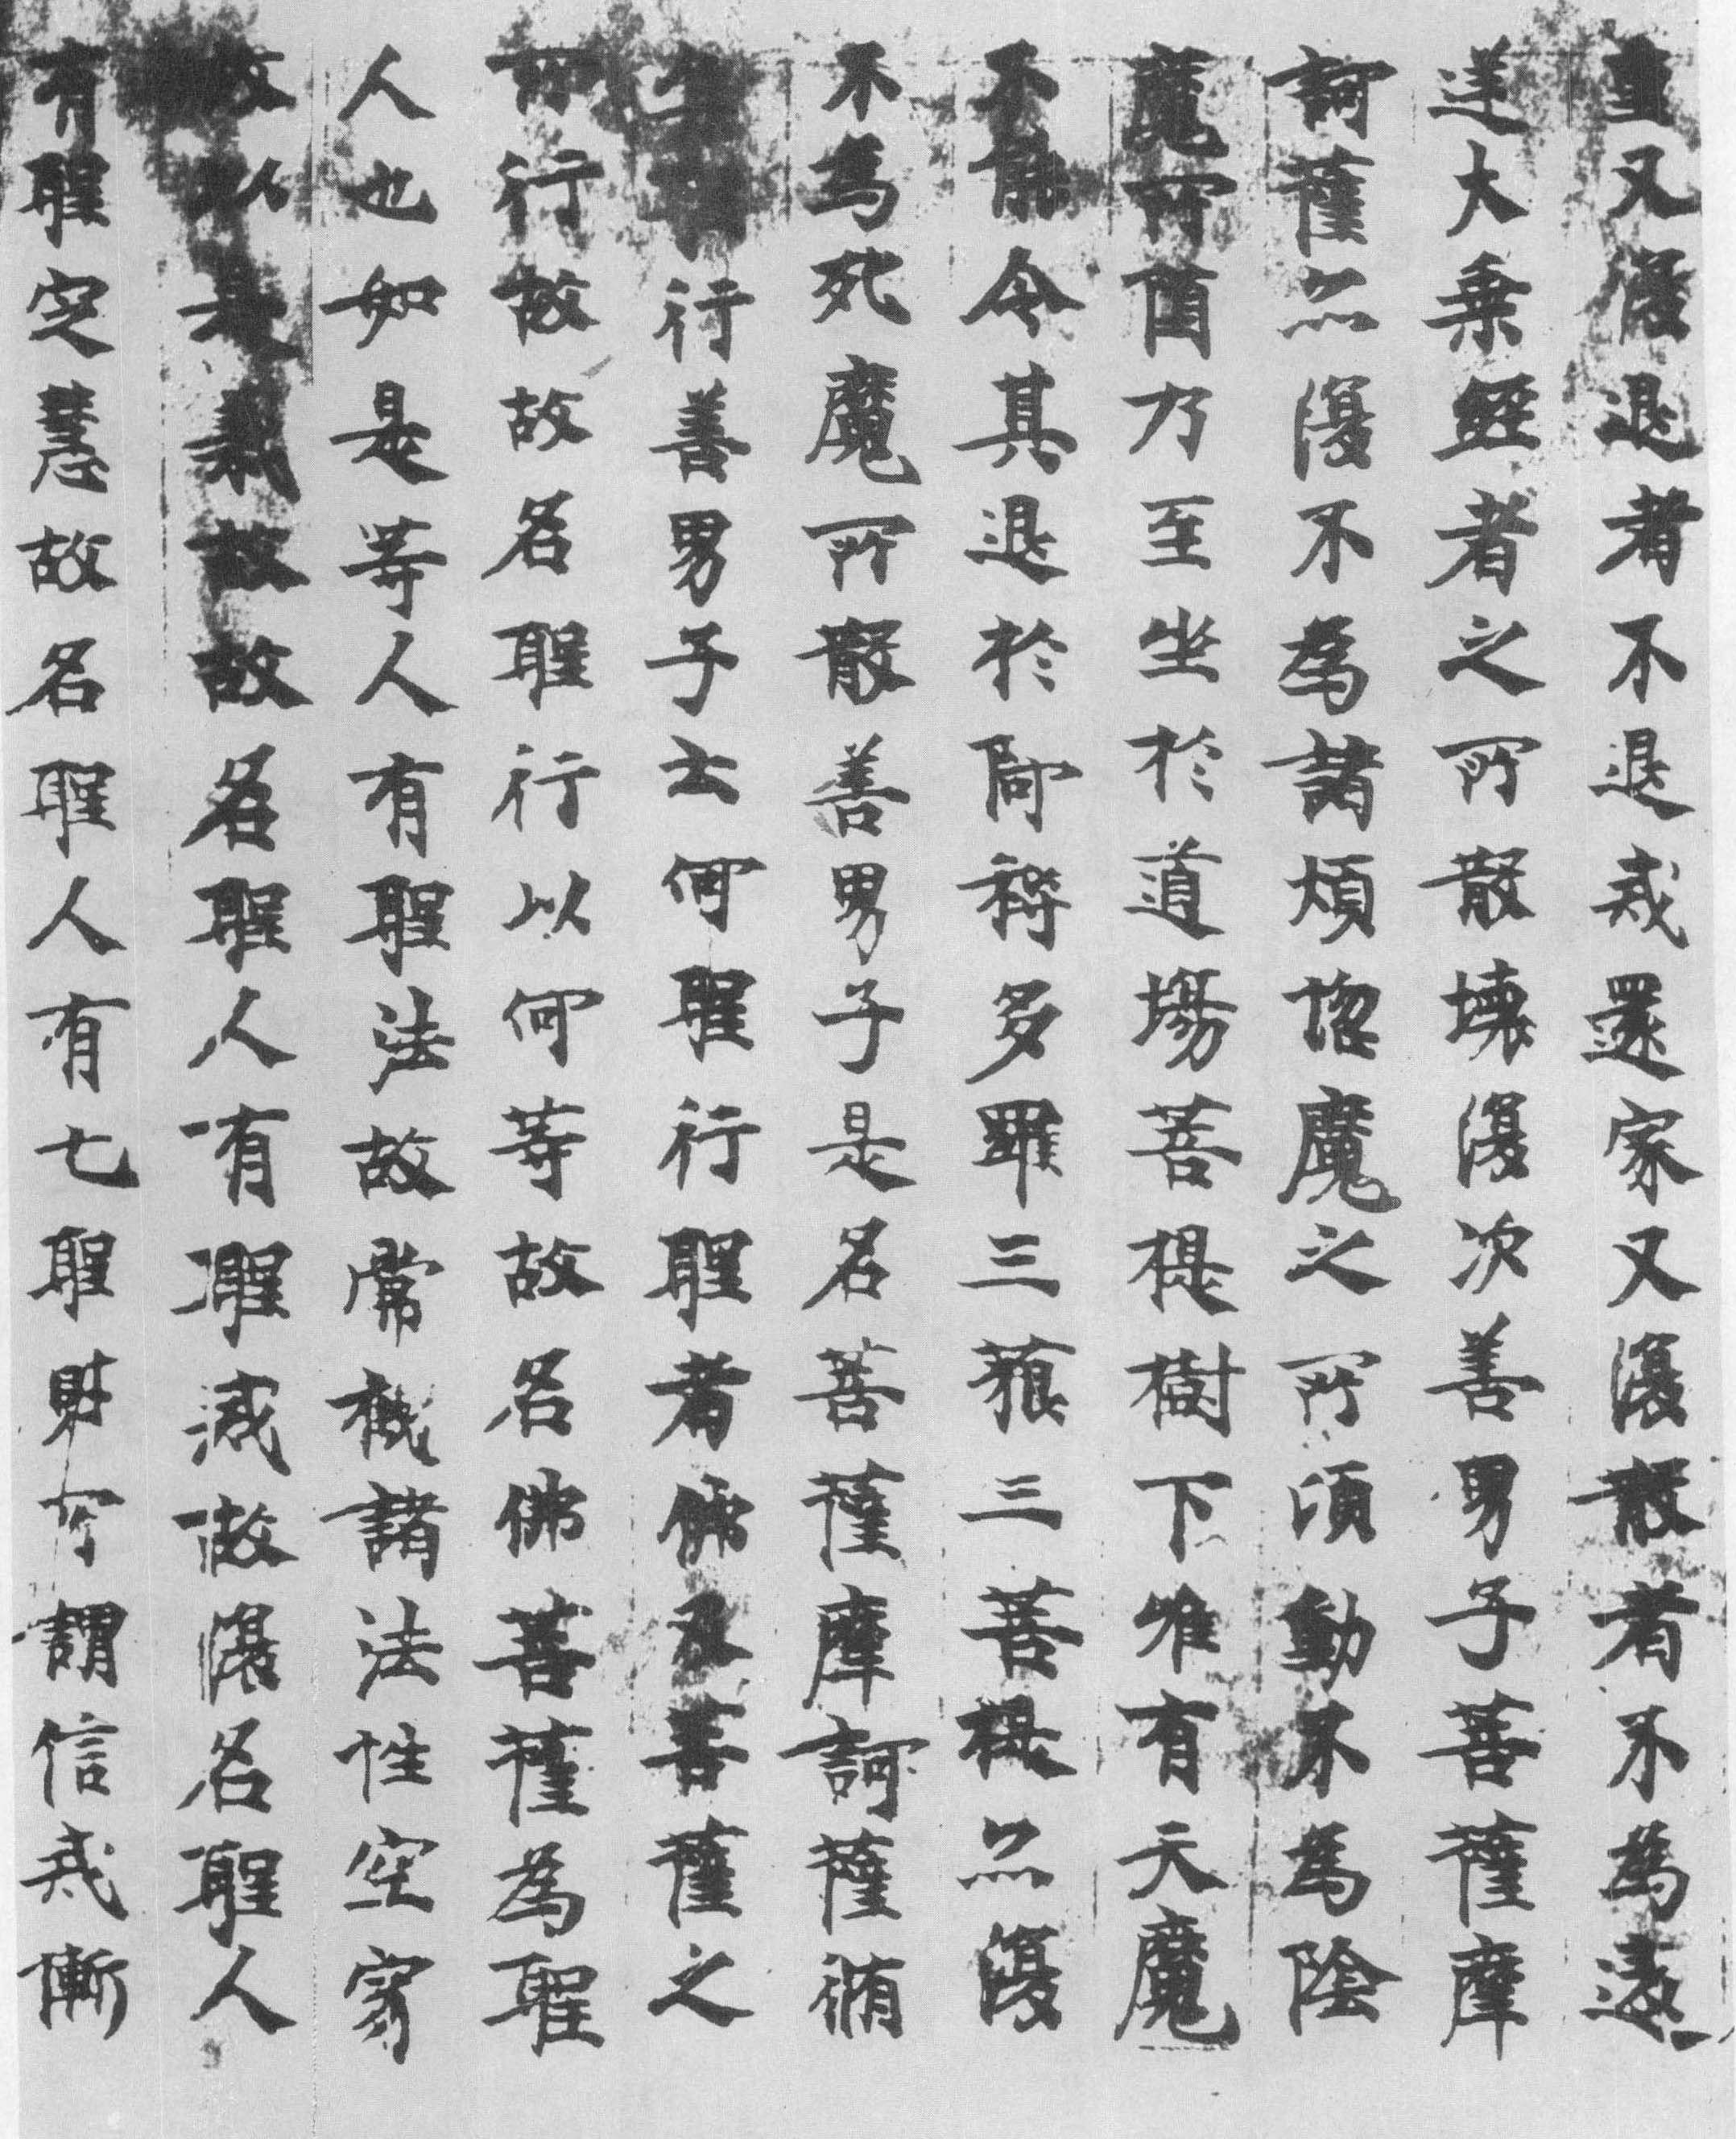 重又復退者不退戒還家又復散者不為違
逆大乗經者之所散壊復次善男子菩薩摩
訶薩亦復不為諸煩惱魔之所傾動不為陰
魔所堕乃至坐於道場菩提樹下唯有天魔
不能令其退於阿耨多羅三藐三菩提亦復
不為死魔所散善男子是名菩薩摩訶薩脩
行善男子云何聖行聖者佛及菩薩之
所行故故名聖行以何等故名佛菩薩為聖
人也如是等人有聖法故常觀諸法性空寂
故以是義故故名聖人有聖戒故復名聖人
有聖定慧故名聖人有七聖財所謂信戒慚